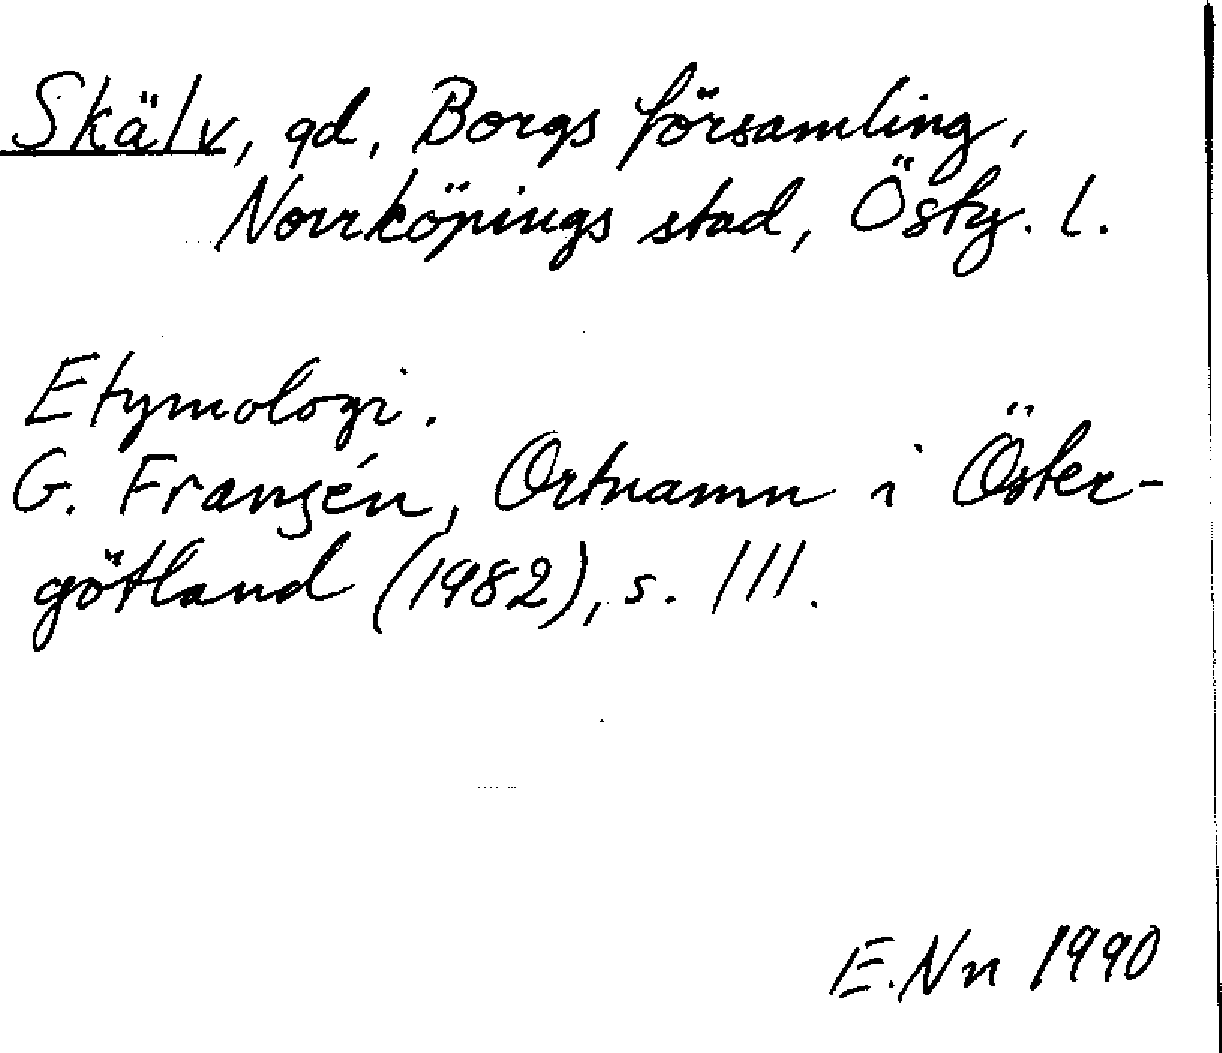 Skälv, gd, Borgs församling,
Norrköpings stad, Östg. l.
Etymologi.
G. Franzén, Ortnamn i Öster-
götland (1982), s. 111.
E. Nn 1990